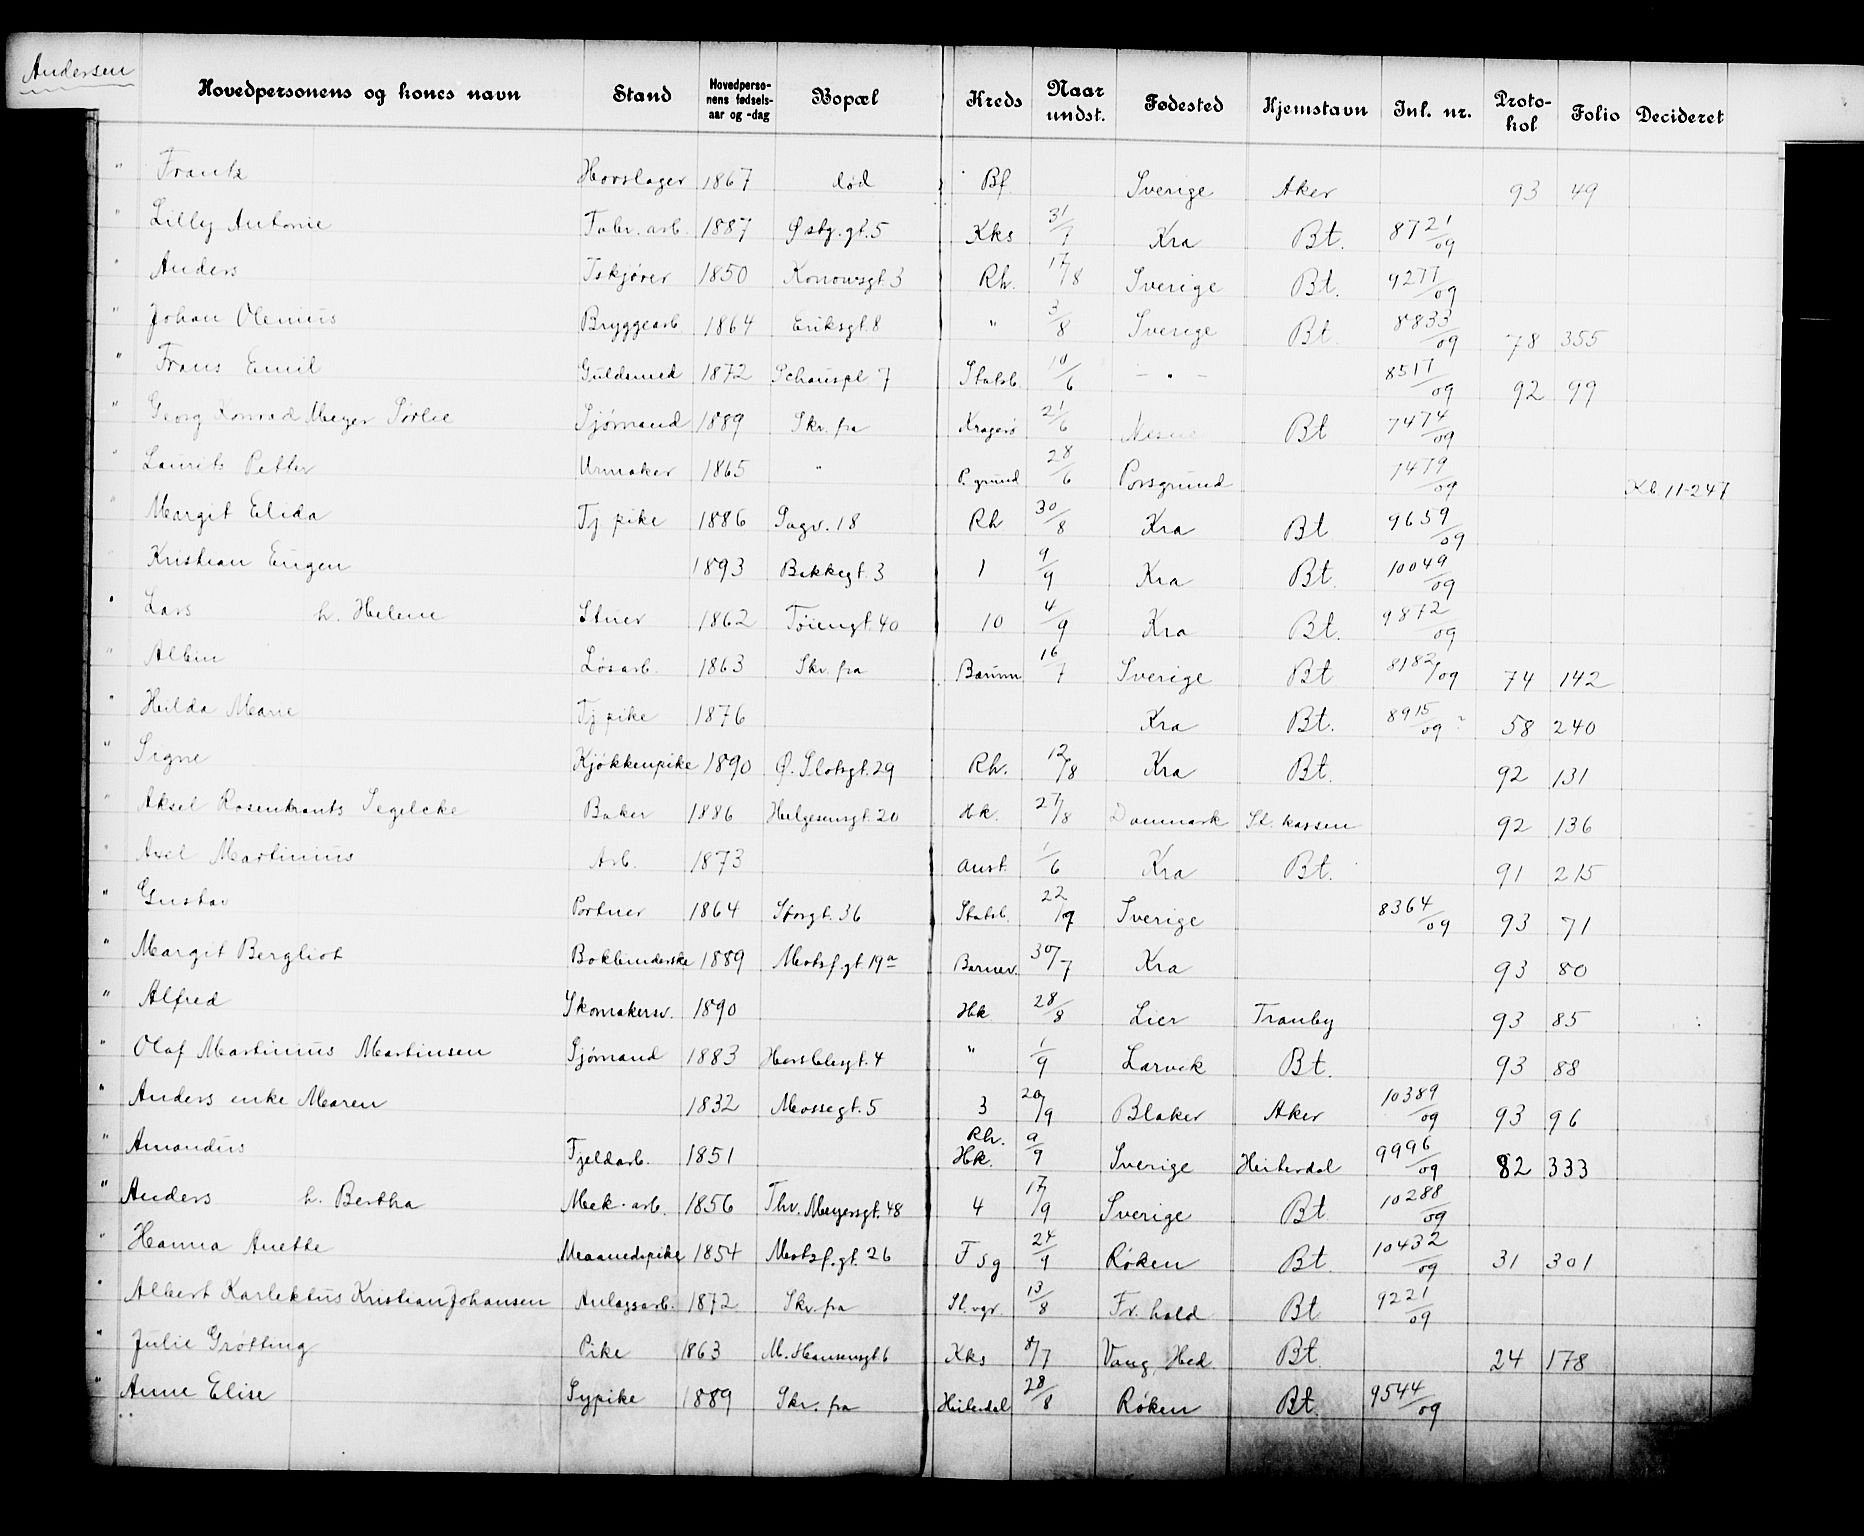 Andersen
Hovedpersonens og kones navn Stand Hovedpersonens fødselsaar og -dag Bopæl Kreds Naar undst. Fødested Hjemstavn Inl. nr. Protokol Folio Decideret
" Frantz 1867 død Bf. Sverige Aker 93 49
" Lilly Antonie Fabr. arb. 1887 Østg. gt. 5 Kks 31/7 Kra Bt. 8721/09
" Anders 1850 Konowsgt. 3 Rh. 17/8 Sverige Bt. 9277/09
" Johan Olenius Bryggearb 1864 Eriksgt. 8 " 3/8 Sverige Bt. 8833/09 78 355
" Frans Emil Guldsmed 1872 Schauspl 7 Statsb. 10/6 - " - 8517/09 92 99
" Georg Konrad Meyer Sørlie Sjømand 1889 Skr. fra Kragerø 21/6 Bt 7474/09
" Laurits Petter Urmaker 1865 " P. grund 28/6 Porsgrund 7479/09 11-247
" Margit Elida Tj pike 1886 Sagv. 18 Rh 30/8 Kra Bt 9659/09
Kristian Eugen 1893 Bakkegt. 3 1 9/9 Kra Bt. 10049/09
" Lars h. Helene Stuer 1862 Tøiengt. 40 10 4/9 Kra Bt. 9872/09
" Albin Løsarb. 1863 Skr. fra Bærum 16/7 Sverige Bt 8182/09 74 142
" Hilda Marie Tj pike 1876 Kra Bt. 8915/09 ? 58 240
" Signe Kjøkkenpike 1890 Ø. Slotsgt. 29 Rh. 12/8 Kra Bt. 92 131
" Aksel Rosenkrants Segelcke Baker 1886 Helgesensgt. 20 Hk. 27/8 Danmark St. kassen 92 136
" Axel Martinius Arb. 1873 Aust. 1/6 Kra Bt. 91 215
" Gustav Portner 1864 Storgt. 36 Statsb. 22/7 Sverige 8364/09 93 71
" Margit Bergliot Bokbinderske 1889 Motzf. gt. 19a Barnev. 30/7 Kra 93 80
" Alfred Skomakersv. 1890 Hk 28/8 Lier Tranby 93 85
" Olaf Martinius Martinsen Sjømand 1883 Herslebsgt. 4 " 1/9 Larvik Bt. 93 88
" Anders enke Maren 1832 Mossegt. 5 3 20/9 Blaker Aker 10389/09 93 96
" Amandus Fjeldarb. 1851 Rh. Hk. 9/9 Sverige Heiterdal 9996/09 82 333
" Anders h. Bertha Mek. arb. 1856 Thv. Meyersgt. 48 4 17/9 Sverige Bt 10288/09
" Hanna Anette Maanedspike 1854 Motzf. gt. 26 F sg 24/9 Røken Bt. 10432/09 31 301
" Albert Karlektus Kristian Johansen Anlægsarb. 1872 Skr. fra St. vgv. 13/8 Fr. hald Bt 9221/09
" Julie Grøtting Pike 1863 M. Hansensgt 6 Kks 8/7 Vang, Hed Bt. 24 178
" Anne Elise Sypike 1889 Skr. fra Heiterdal 28/8 Røken Bt. 9544/09